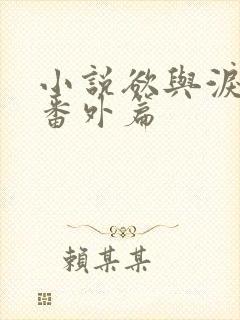 小說欲與淚
番外篇
賴某某